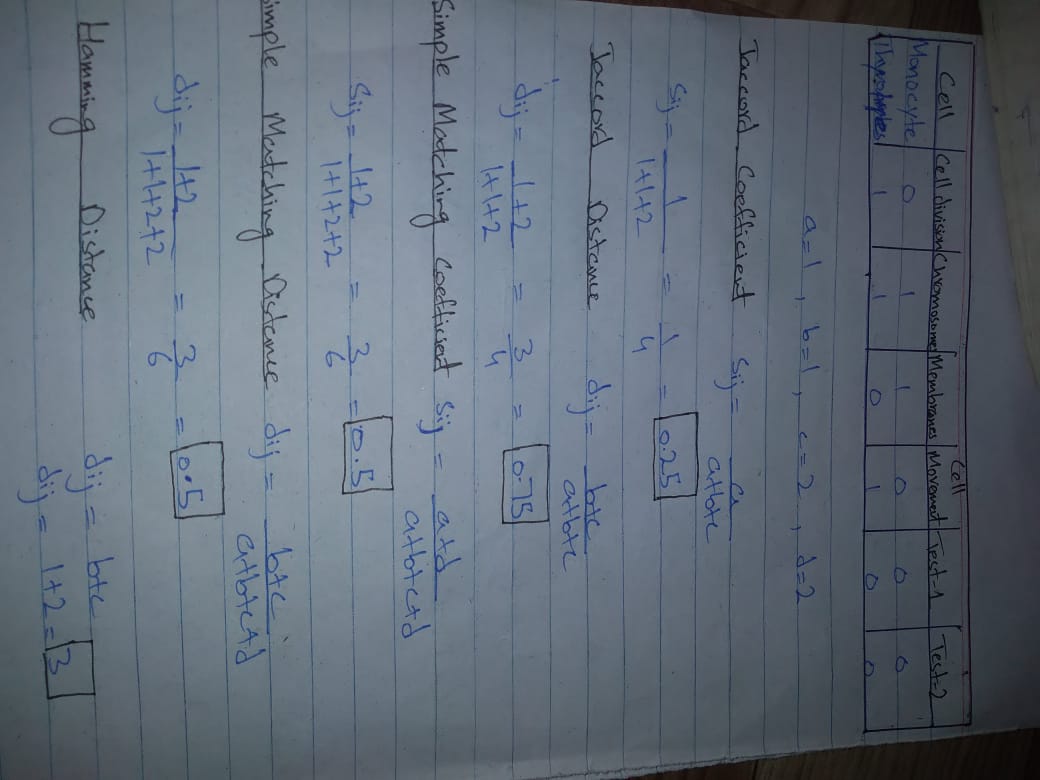 Cell | Cell division | Chromosomes | Membranes | Cell Movement | Test-1 | Test-2
Monocyte | 0 | 1 | 1 | 0 | 0 | 0
1 | 1 | 0 | 1 | 0 | 0
a=1, b=1, c=2, d=2
Jaccord Coefficient Sij = a / a+b+c
Sij = 1 / 1+1+2 = 1 / 4 = 0.25
Jaccord Distance dij = b+c / a+b+c
dij = 1+2 / 1+1+2 = 3 / 4 = 0.75
Simple Matching Coefficient Sij = a+d / a+b+c+d
Sij = 1+2 / 1+1+2+2 = 3 / 6 = 0.5
Simple Matching Distance dij = b+c / a+b+c+d
dij = 1+2 / 1+1+2+2 = 3 / 6 = 0.5
Hamming Distance dij = b+c
dij = 1+2 = 3